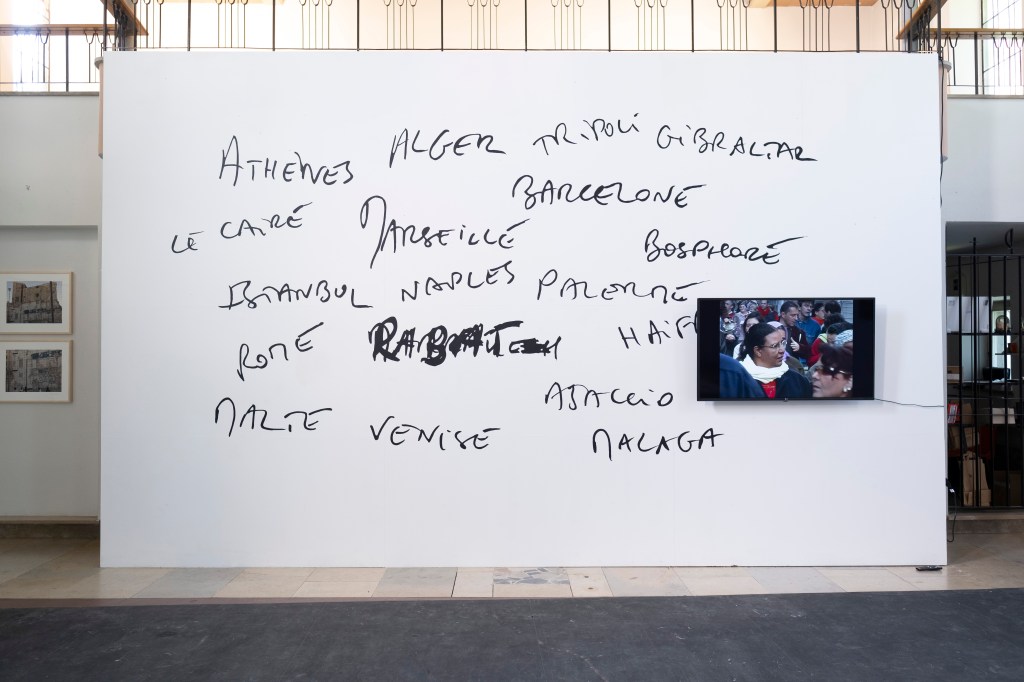 ATHÈNES ALGER TRIPOLI GIBRALTAR
BARCELONE
LE CAIRE MARSEILLE BOSPHORE
ISTANBUL NAPLES PALERME
ROME RABAT HAIF
AJACCIO
MALTE VENISE MALAGA